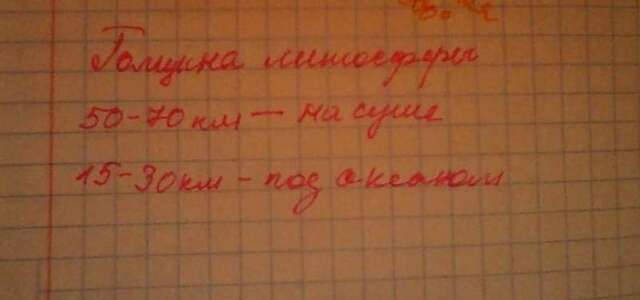 Толщина литосферы
50-70 км — на суше
15-30 км - под океаном